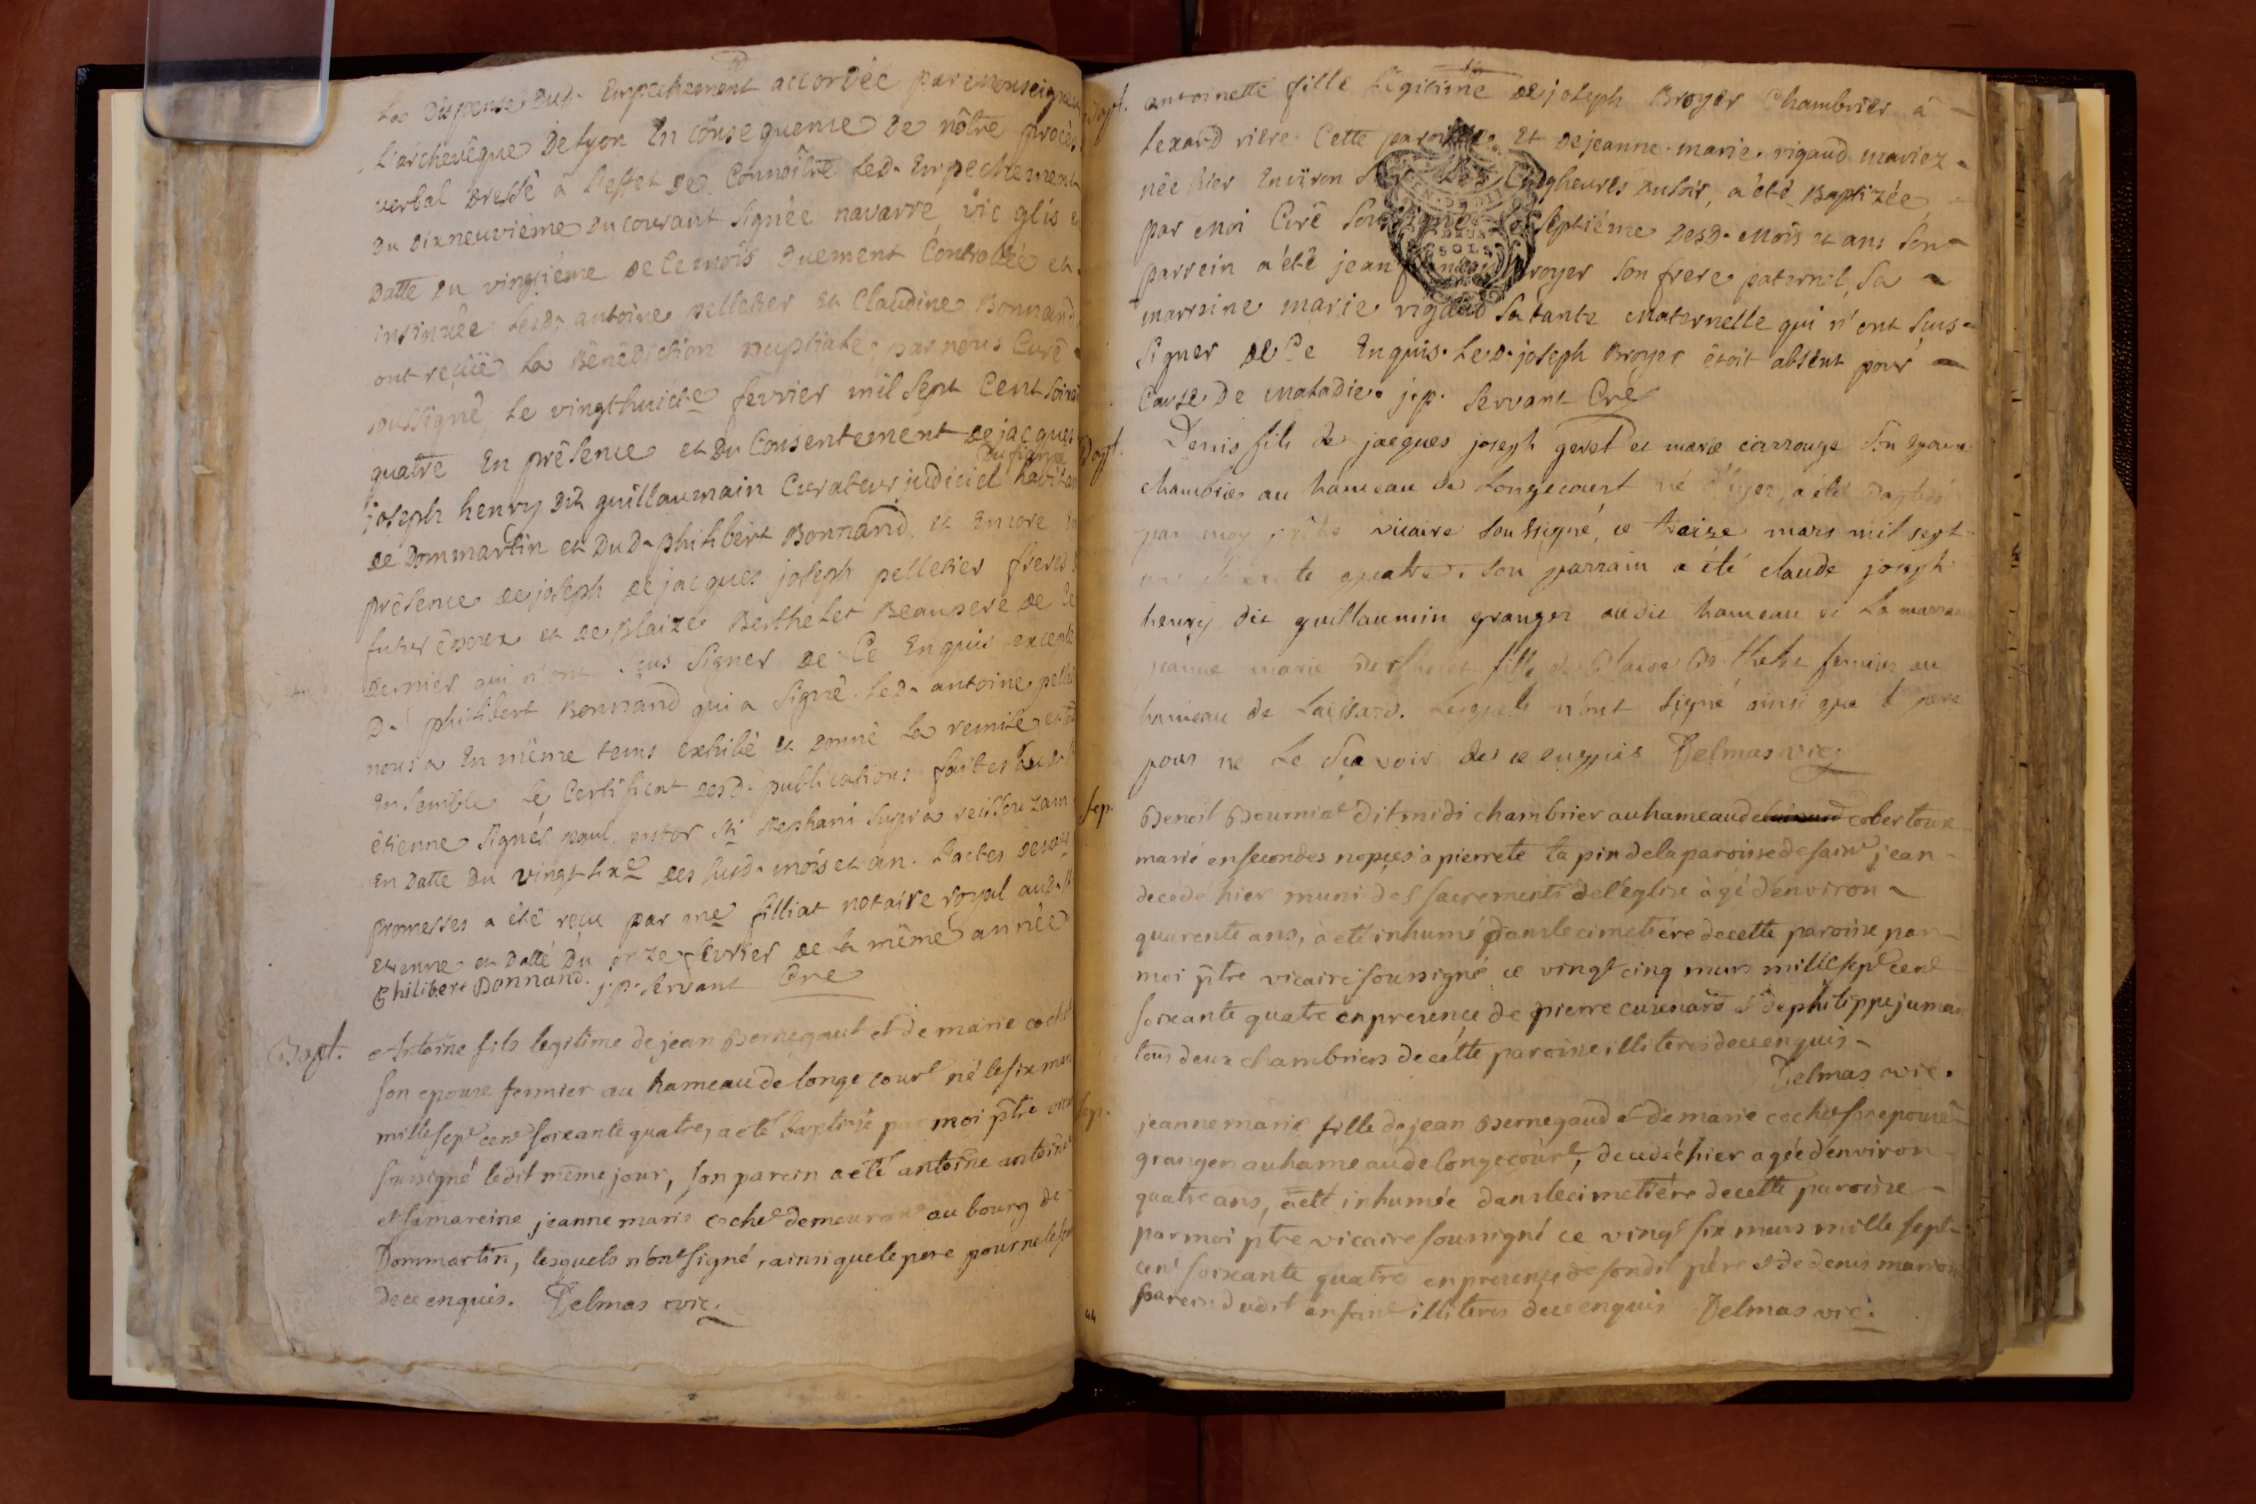 La Dispense Dud. Empechement accordée par monseigneur
L'archevêque De lyon En consequence De nôtre procès
verbal Dressé à l'effet De Connoître Led. Empechement
Du Dixneuvième Du courant Signée navarre vic glis
Datte Du vingtième De Ce mois Duement Controllée et
insinuée Lesd. antoine pelletier et Claudine Bonnand
ont reçüe La Bénédiction nuptiale par nous Curé
soussigné Le vingthuict.e fevrier mil Sept Cent soixante
quatre En présence et Du Consentement De jacques
Du figuré
joseph henry Dit guillaumain Curateur judiciel havitan
de Dommartin et Du D. philibert Bonnand, et Encore
présence de joseph de jacques joseph pelletier freres
futur époux et de Blaize Berthelet Beaupere de
dernier qui n'ont Sçus Signer De Ce Enquis excepté
D. philibert Bonnand qui a Signé. Led. antoine pelle
nous a En même tems exhibé et donné La remise
Ensemble Le Certificat desd. publications faites
étienne Signés pastor Sti stephani Supra reissouzam
En Datte Du vingt six.e des susd. mois et an. L'actes
promesses a été reçu par me filliat notaire royal aud. St
Etienne et Datté Du onze fevrier De La même année
Philibert Bonnand. j. p. Servant Cre
Bapt. Antoine fils legitime de jean Bernegaut et de marie coche
son epouse fermier au hameau de longe court né le six mars
mille sept cent soixante quatre, a eté baptisé par moi ptre vic
soussigné ledit même jour, son parein a eté antoine antoine
et sa mareine jeanne marie coche demeurant au bourg de
Dommartin, lesquels n'ont signé, ainsi que le pere pour ne le sca
de ce enquis. Delmas vic.
Bapt. antoinette fille Légitime de joseph Broyer Chambrier à
Lexard riere Cette paroisse Et De jeanne. marie. rigaud mariez
née hier Environ Cinq heures Du soir, a été Baptizée
par moi Curé Soussigné septième Desd. mois et an Son
parrein a été jean Broyer Son frere paternel, Sa
marreine marie rigaud Sa tante maternelle qui n'ont Sçus
Signer De Ce Enquis. Led. joseph Broyer étoit absent pour
Cause De maladie. j. p. Servant Cre
Bapt. Denis fils de jacques joseph geret et marie carrouge Son epouse
chambrier au hameau de Longecourt né hyer, a été baptisé
par moy vicaire soussigné, ce treize mars mil sept
quatre. son parrain a été claude joseph
henry dit guillaumin granger audit hameau et la marraine
jeanne marie Berthelet fille de Blaise Berthelet fermier au
hameau de Laissard. Lesquels n'ont signé ainsi que le pere
pour ne Le sçavoir de ce enquis Delmas vic.
sep. Benoit Bourniat dit midi chambrier au hameau de cobertoux
marié en secondes nopces a pierrete tapin de la paroisse de saint jean
decedé hier muni des sacrements de l'eglise àgé d'environ
quarente ans, a eté inhumé dans le cimetière de cette paroisse par
moi ptre vicaire soussigné ce vingt cinq mars mille sept cent
soixante quatre en presence de pierre curenard et de philippe juman
tous deux chambriers de cette paroisse illiteres de ce enquis
Delmas vic.
sep. jeanne marie fille de jean Bernegaud et de marie coche son epouse
granger au hameau de longecourt, decedée hier agée d'environ
quatre ans, a eté inhumée dans le cimetière de cette paroisse
par moi ptre vicaire soussigné ce vingt six mars mille sept
cent soixante quatre en presence de son dit père et de denis marion
parein dudit enfant illiteres de ce enquis Delmas vic.
44